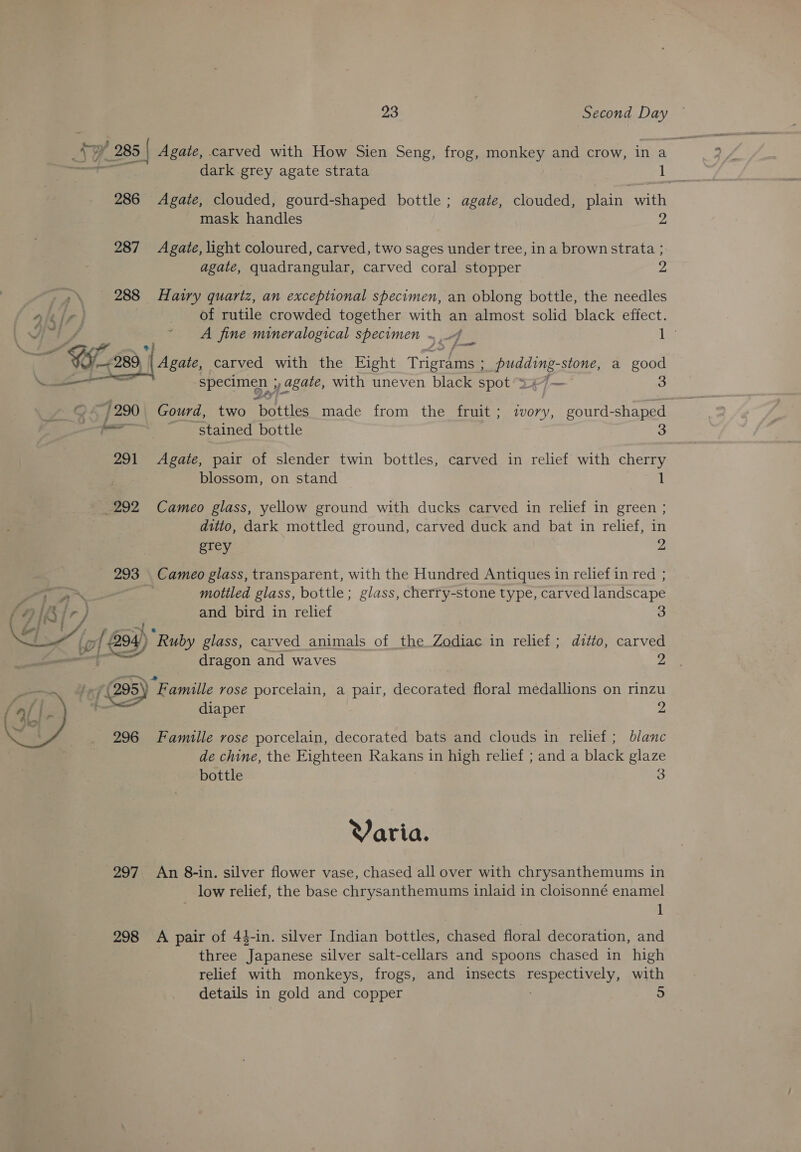 23 Second Day
285 Agate, carved with How Sien Seng, frog, monkey and crow, in a
dark grey agate strata 1
286 Agate, clouded, gourd-shaped bottle; agate, clouded, plain with
mask handles 2
287 Agate, light coloured, carved, two sages under tree, in a brown strata;
agate, quadrangular, carved coral stopper 2
288 Hairy quartz, an exceptional specimen, an oblong bottle, the needles
of rutile crowded together with an almost solid black effect.
A fine mineralogical specimen 1
289 Agate, carved with the Eight Trigrams; pudding-stone, a good
specimen; agate, with uneven black spot 3
290 Gourd, two bottles made from the fruit; ivory, gourd-shaped
stained bottle 3
291 Agate, pair of slender twin bottles, carved in relief with cherry
blossom, on stand 1
292 Cameo glass, yellow ground with ducks carved in relief in green;
ditto, dark mottled ground, carved duck and bat in relief, in
grey 2
293 Cameo glass, transparent, with the Hundred Antiques in relief in red;
mottled glass, bottle; glass, cherry-stone type, carved landscape
and bird in relief 3
294 Ruby glass, carved animals of the Zodiac in relief; ditto, carved
dragon and waves 2
295 Famille rose porcelain, a pair, decorated floral medallions on rinzu
diaper 2
296 Famille rose porcelain, decorated bats and clouds in relief; blanc
de chine, the Eighteen Rakans in high relief; and a black glaze
bottle 3
Varia.
297 An 8-in. silver flower vase, chased all over with chrysanthemums in
low relief, the base chrysanthemums inlaid in cloisonné enamel
1
298 A pair of 4½-in. silver Indian bottles, chased floral decoration, and
three Japanese silver salt-cellars and spoons chased in high
relief with monkeys, frogs, and insects respectively, with
details in gold and copper 5